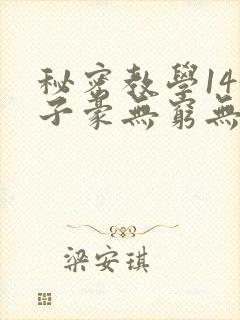 秘密教學14
子豪無窮無
梁安琪